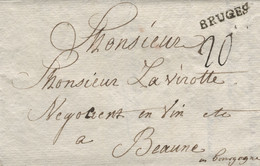 BRUGES
Monsieur
20
Monsieur La Virotte
Negocient en Vin etc
a Beaune
en bourgogne